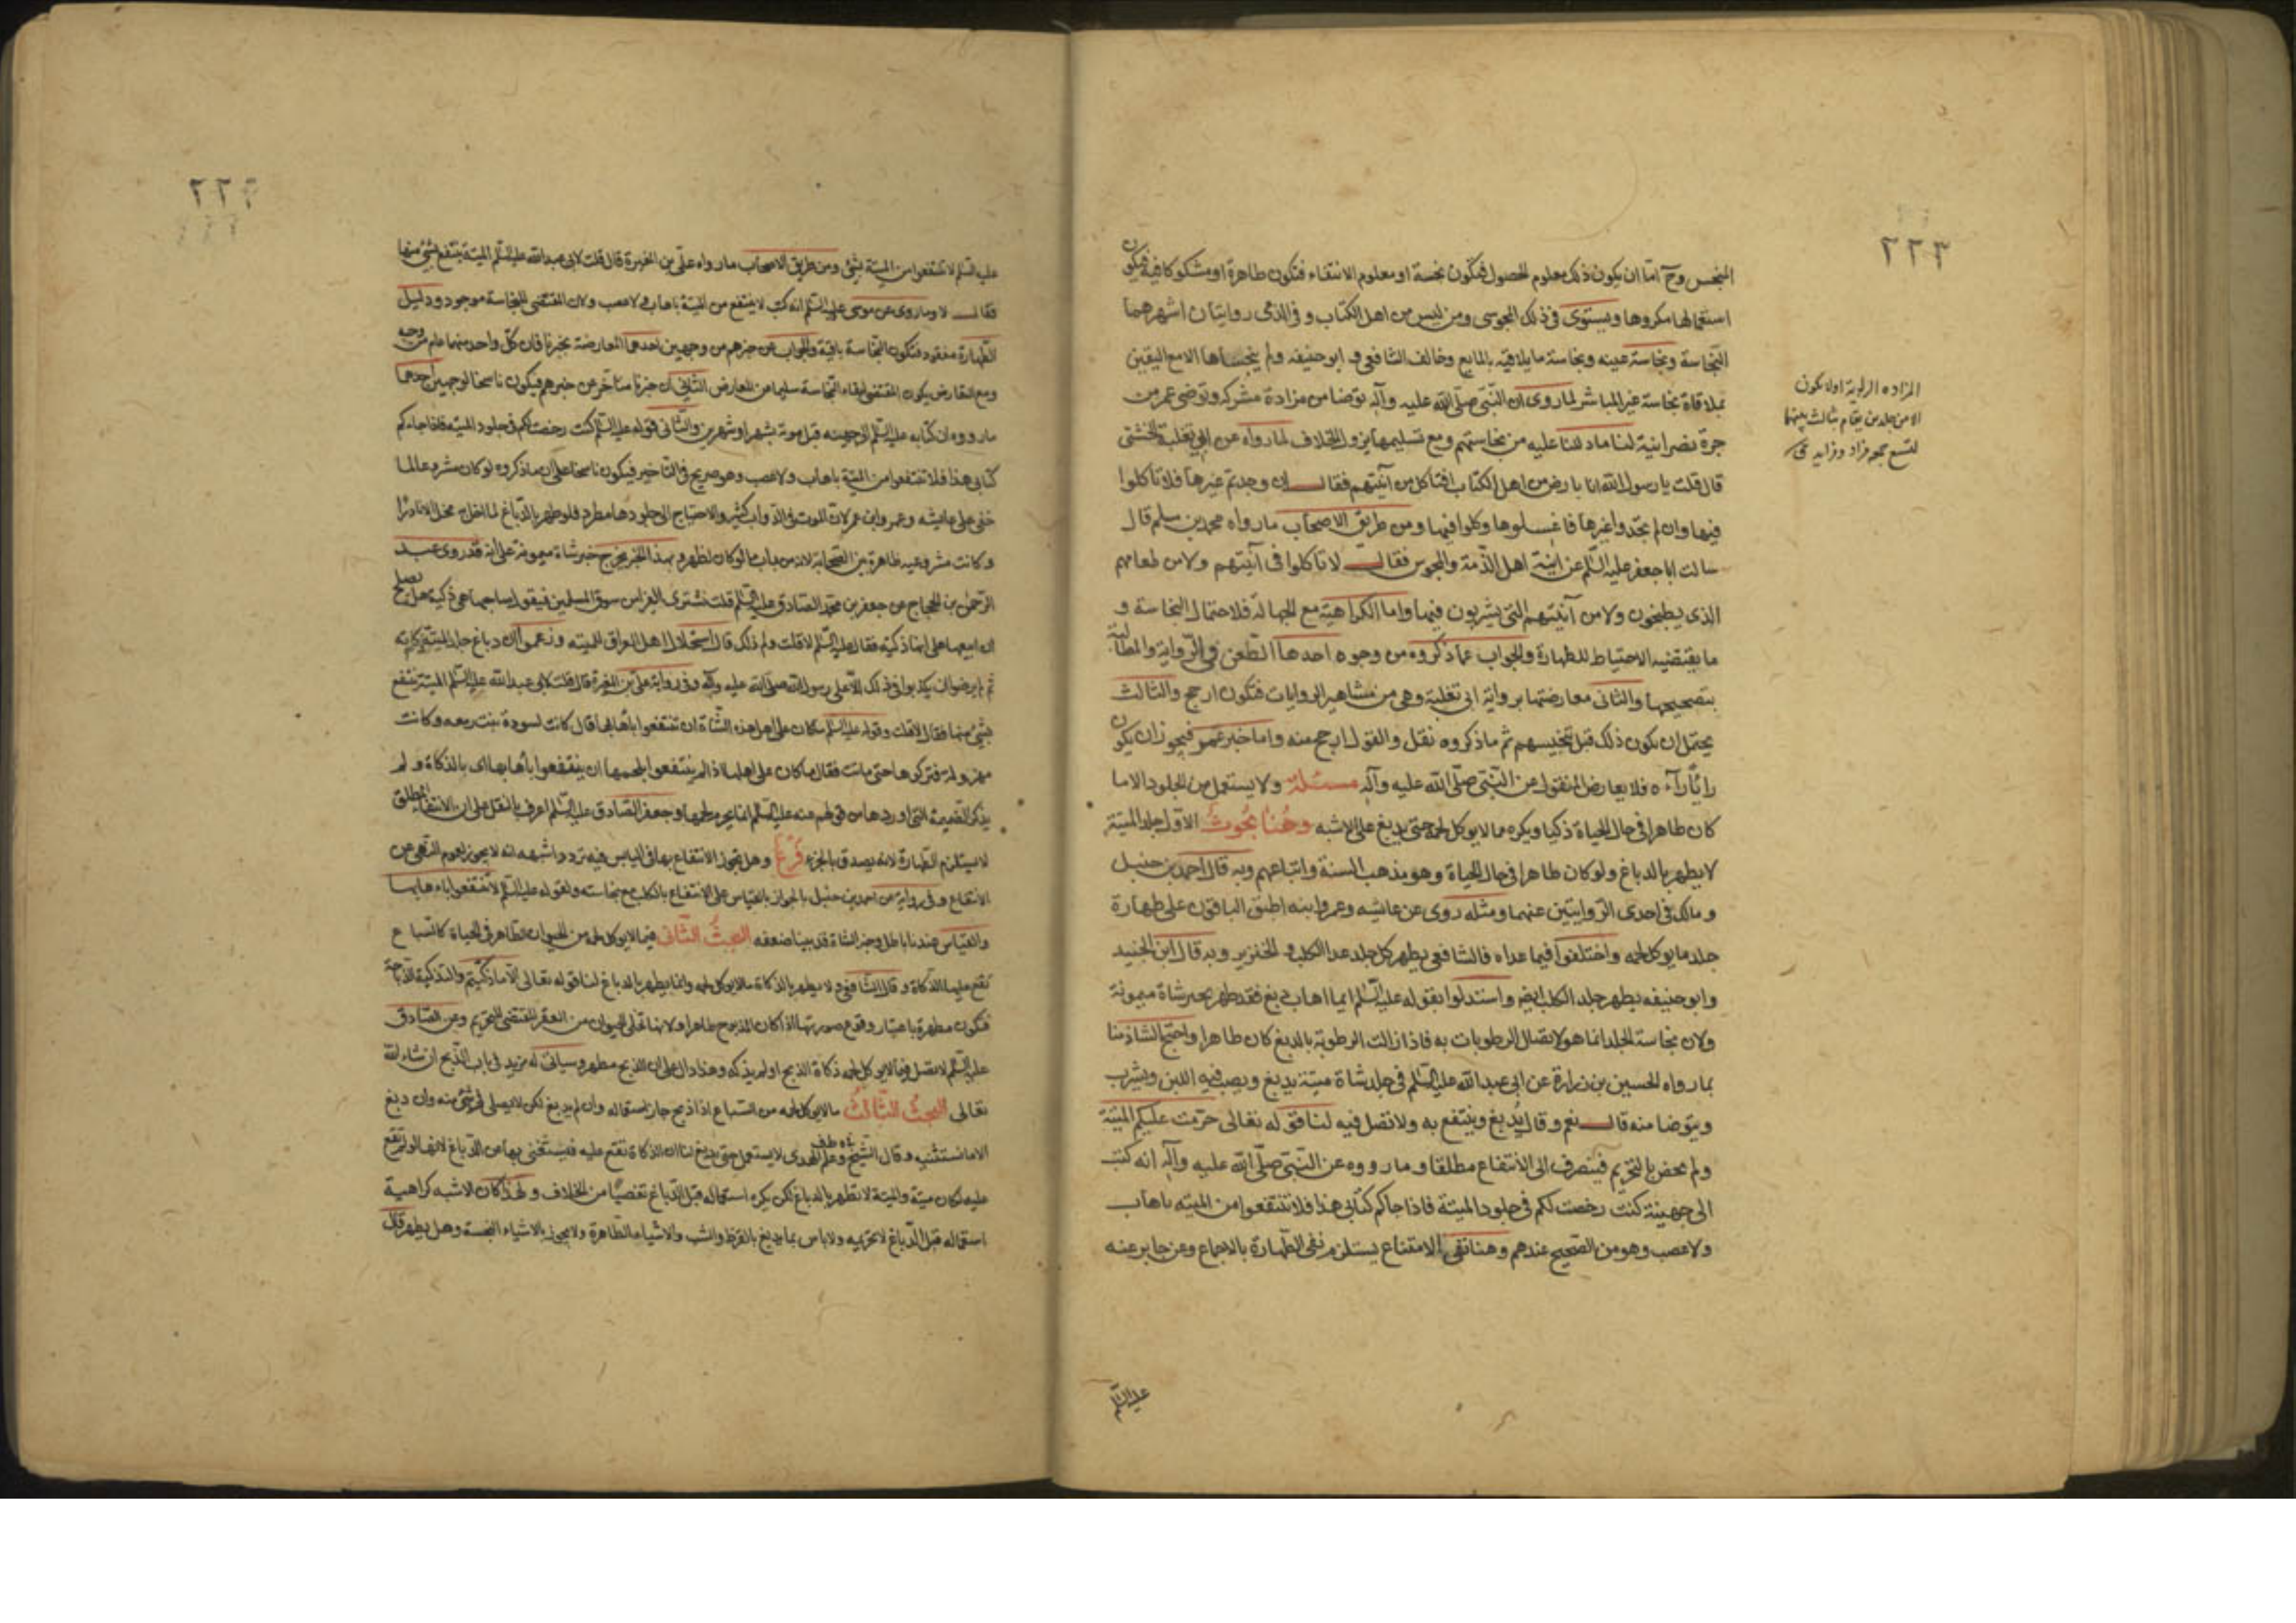 ٢٢٣
النجس وح اما ان يكون ذلك معلوم الحصول فيكون نجسة او معلوم الانتفاء فتكون طاهرة او مشكوكا فيه فيكون
استعمالها مكروها ويستوى فى ذلك المجوسى ومن ليس من اهل الكتاب و فى الذمى روايتان اشهرهما
النجاسة ونجاسة عينه ونجاسة ما يلاقيه بالمايع وخالف الشافعى و ابو حنيفه ولم ينجساها الا مع اليقين
بملاقاة نجاسة غير المباشر لما روى ان النبى صلى الله عليه وآله توضا من مزادة مشركه وتوضى عمر من
جرة نصرانية لنا ما دللنا عليه من نجاستهم ومع تسليمها يزول الخلاف لما رواه عن ابى ثعلبة الخشنى
قال قلت يا رسول الله انا بارض من اهل الكتاب افناكل من آنيتهم فقال ان وجدتم غيرها فلا تاكلوا
فيها وان لم تجدوا غيرها فاغسلوها وكلوا فيها ومن طريق الاصحاب ما رواه محمد بن مسلم قال
سالت ابا جعفر عليه السلم عن انية اهل الذمة والمجوس فقال لا تاكلوا فى آنيتهم ولا من طعامهم
الذى يطبخون ولا من آنيتهم التى يشربون فيها واما الكراهية مع الجهالة فلاحتمال النجاسة و
ما يقتضيه الاحتياط للطهارة والجواب عما ذكروه من وجوه احدها الطعن فى الرواية والمطالبة
بتصحيحها والثانى معارضتها برواية ابى ثعلبة وهى من مشاهير الروايات فتكون ارجح والثالث
يحتمل ان يكون ذلك قبل تنجيسهم ثم ما ذكروه نقل والقول ارجح منه واما خبر عمر فيجوز ان يكون
رايا رآه فلا يعارض المنقول عن النبى صلى الله عليه وآله مسئلة ولا يستعمل من الجلود الا ما
كان طاهرا فى حال الحياة ذكيا ويكره مما لا يوكل لحمه حتى يدبغ على الاشبه وهنا بحوث الاول جلد الميتة
لا يطهر بالدباغ ولو كان طاهرا فى حال الحياة وهو مذهب السنة واتباعهم وبه قال احمد بن حنبل
ومالك فى احدى الروايتين عنهما ومثله روى عن عائشه وعمر وابنه اطبق الباقون على طهارة
جلد ما يوكل لحمه واختلفوا فيما عداه فالشافعى يطهر كل جلد عدا الكلب و الخنزير وبه قال ابن الجنيد
وابو حنيفه يطهر جلد الكلب ايضا واستدلوا بقوله عليه السلم ايما اهاب دبغ فقد طهر بخبر شاة ميمونة
ولان نجاسة الجلد انما هو لاتصال الرطوبات به فاذا زالت الرطوبة بالدبغ كان طاهرا واحتج الشاذ منا
بما رواه الحسين بن زرارة عن ابى عبد الله عليه السلم فى جلد شاة ميتة يدبغ ويصب فيه اللبن ويشرب
ويتوضا منه قال نعم وقال يدبغ وينتفع به ولا تصل فيه لنا قوله تعالى حرمت عليكم الميتة
ولم يحض بالتحريم فينصرف الى الانتفاع مطلقا وما رووه عن النبى صلى الله عليه وآله انه كتب
الى جهينة كنت رخصت لكم فى جلود الميتة فاذا جاكم كتابى هذا فلا تنتفعوا من الميته باهاب
ولا عصب وهو من الصحيح عندهم وهنا نفى الامتناع يستلزم نفى الطهارة بالاجماع وعن جابر عنه
عليه السلم
المزاده الراوية اولا تكون
الا من جلدين يقام بثالث بينهما
لتسع جمع مزاد ومزايد
٢٢٤
عليه السلم لا تنتفعوا من الميتة بشئ ومن طريق الاصحاب ما رواه على بن المغيرة قال قلت لابى عبد الله عليه السلم الميتة ينتفع بشئ منها
فقال لا وما روى عن موسى عليه السلم انه كتب لا ينتفع من الميتة باهاب و لا عصب ولان المقتضى للنجاسة موجود ودليل
الطهارة مفقود فتكون النجاسة باقية والجواب عن خبرهم من وجهين احدهما المعارضة بخبرنا فان كل واحد منهما عام من وجه
ومع التعارض يكون المقتضى لبقاء النجاسة سليما من المعارض الثانى ان خبرنا متاخر عن خبرهم فيكون ناسخا لوجهين احدهما
ما رووه ان كتابه عليه السلم الى جهينه قبل موته بشهر او شهرين والثانى قوله عليه السلم كنت رخصت لكم فى جلود الميته فاذا جاءكم
كتابى هذا فلا تنتفعوا من الميتة باهاب ولا عصب وهو صريح فى التاخير فيكون ناسخا على ان ما ذكروه لو كان مشروعا لما
خفى على عايشه وعمر وابن عمر لان الموت فى الدواب كثير والاحتياج الى جلودها مطرد فلو طهر بالدباغ لما
وكانت مشروعيه ظاهرة بين الصحابة لانه من باب ما لو كان لظهر و بهذا الخبر يخرج خبر شاة ميمونة على انه قد روى عبد
الرحمن بن الحجاج عن جعفر بن محمد الصادق عليه السلم قلت نشترى الفراء من سوق المسلمين فيقول صاحبها هى ذكية هل يصلح
ان ابيعها على انها ذكية فقال عليه السلم لا قلت ولم ذلك قال استحلال اهل العراق للميته وزعموا ان دباغ جلد الميتة ذكاته
ثم لم يرضوا ان يكذبوا فى ذلك الا على رسول الله صلى الله عليه وآله وفى رواية على بن المغيرة قال قلت لابى عبد الله عليه السلم الميتة ينتفع
بشئ منها فقال لا قلت وقوله عليه السلم ما كان على اهل هذه الشاة ان تنتفعوا باهابها قال كانت لسودة بنت زمعه وكانت
مهزولة فتركوها حتى ماتت فقال ما كان على اهلها اذ لم ينتفعوا بلحمها ان ينتفعوا باهابها اى بالذكاة و لم
يذكر التتمه التى اوردها من قولهم عنه عليه السلم انما يحرم لحمها وجعفر الصادق عليه السلم اعرف بالنقل على ان الانتفاع المطلق
لا يستلزم الطهارة لانه يصدق بالجزء فرع وهل يجوز الانتفاع بها فى اليابس فيه تردد اشبهه انه لا يجوز لعموم النهى عن
الانتفاع وفى رواية عن احمد بن حنبل بالجواز بالقياس على الانتفاع بالكلب مع نجاسته ولقوله عليه السلم لا تنتفعوا باهابها
والقياس عندنا باطل وخبر الشاة قد بينا ضعفه البحث الثانى فيما لا يوكل لحمه من الحيوان الطاهر فى الحياة كالسباع
تقع عليها الذكاة وقال الشافعى لا يطهر بالذكاة ما لا يوكل لحمه وانما يطهر بالدباغ لنا قوله تعالى الا ما ذكيتم والتذكية الذباحة
فتكون مطهرة باعتبار وقوع صورتها اذا كان المذبوح طاهرا ولانها تخلى الحيوان من العقر المقتضى للتحريم وعن الصادق
عليه السلم لا تصل فيما لا يوكل لحمه ذكاة الذبح او لم يذكه وهذا دال على ان الذبح مطهر وسياتى له مزيد فى باب الذبح ان شاء الله
تعالى البحث الثالث ما لا يوكل لحمه من السباع اذا ذبح جاز استعماله وان لم يدبغ لكن لا يصلى فى شئ منه وان دبغ
الا ما نستثنيه و قال الشيخ وعلم الهدى لا يستعمل حتى يدبغ لنا ان الذكاة تقع عليه فيستغنى بها عن الدباغ لانها لو لم تقع
عليه لكان ميتة والميتة لا تطهر بالدباغ لكن يكره استعماله قبل الدباغ تفصيا من الخلاف ولهذا كان الاشبه كراهية
استعماله قبل الدباغ لا تحريمه ولا باس بما يدبغ بالقرظ والشب والاشياء الطاهرة ولا يجوز بالاشياء النجسة وهل يطهر قال